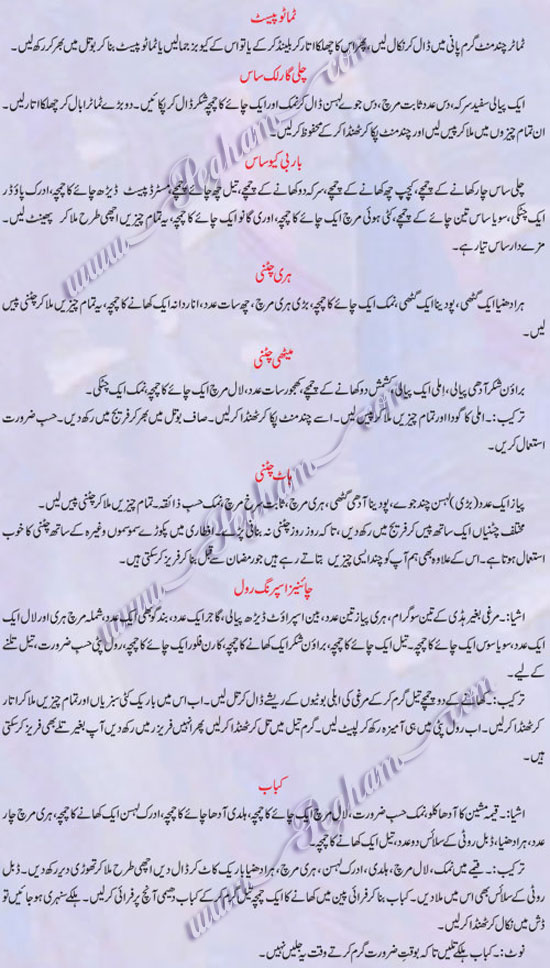 ٹماٹو پیسٹ
ٹماٹر چند منٹ گرم پانی میں ڈال کر نکال لیں، پھر اس کا چھلکا اتار کر بلینڈ کر کے یا تو اس کے کیوبز جما لیں یا ٹماٹو پیسٹ بنا کر بوتل میں بھر کر رکھ لیں۔
چلی گارلک ساس
ایک پیالی سفید سرکہ، دس عدد ثابت مرچ، دس جوے لہسن ڈال کر نمک اور ایک چائے کا چمچہ شکر ڈال کر پکائیں۔ دو بڑے ٹماٹر ابال کر چھلکا اتار لیں۔
ان تمام چیزوں میں ملا کر پیس لیں اور چند منٹ پکا کر ٹھنڈا کر کے محفوظ کر لیں۔
باربی کیو ساس
چلی ساس چار کھانے کے چمچے، کیچپ چھ کھانے کے چمچے، سرکہ دو کھانے کے چمچے، تیل چھ چائے کے چمچے، مسٹرڈ پیسٹ ڈیڑھ چائے کا چمچہ، ادرک پاؤڈر
ایک چٹکی، سویا ساس تین چائے کے چمچے، کٹی ہوئی مرچ ایک چائے کا چمچہ، اوری گانو ایک چائے کا چمچہ، یہ تمام چیزیں اچھی طرح ملا کر پھینٹ لیں۔
مزے دار ساس تیار ہے۔
ہری چٹنی
ہرا دھنیا ایک گٹھی، پودینا ایک گٹھی، نمک ایک چائے کا چمچہ، بڑی ہری مرچ، چھ سات عدد، انار دانہ ایک کھانے کا چمچہ، یہ تمام چیزیں ملا کر چٹنی پیس
لیں۔
میٹھی چٹنی
براؤن شکر آدھی پیالی، املی ایک پیالی، کشمش دو کھانے کے چمچے، کھجور سات عدد، لال مرچ ایک چائے کا چمچہ، نمک ایک چٹکی۔
ترکیب:۔ املی کا گودا اور تمام چیزیں ملا کر پیس لیں۔ اسے چند منٹ پکا کر ٹھنڈا کر لیں۔ صاف بوتل میں بھر کر فریج میں رکھ دیں۔ حسب ضرورت
استعمال کریں۔
ہاٹ چٹنی
پیاز ایک عدد (بڑی) لہسن چند جوے، پودینا آدھی گٹھی، ہری مرچ، ثابت سرخ مرچ، نمک حسب ذائقہ۔ تمام چیزیں ملا کر چٹنی پیس لیں۔
مختلف چٹنیاں ایک ساتھ پیس کر فریج میں رکھ دیں، تاکہ روز روز چٹنی نہ بنانی پڑے۔ افطاری میں پکوڑے سموسوں وغیرہ کے ساتھ چٹنی کا خوب
استعمال ہوتا ہے۔ اس کے علاوہ بھی ہم آپ کو چند ایسی چیزیں بتاتے رہے ہیں جو رمضان سے قبل بنا کر فریز کر سکتی ہیں۔
چائنیز اسپرنگ رول
اشیا:۔ مرغی بغیر ہڈی کے تین سو گرام، ہری پیاز تین عدد، بین اسپراؤٹ ڈیڑھ پیالی، گاجر ایک عدد، بند گوبھی ایک عدد، شملہ مرچ ہری اور لال ایک
ایک عدد، سویا سوس ایک چائے کا چمچہ، تیل ایک چائے کا چمچہ، براؤن شکر ایک کھانے کا چمچہ، کارن فلور ایک چائے کا چمچہ، رول پٹی حسب ضرورت، تیل تلنے
کے لیے۔
ترکیب:۔ کھانے کے دو چمچے تیل گرم کر کے مرغی کی ابلی بوٹیوں کے ریشے ڈال کر تل لیں۔ اب اس میں باریک کٹی سبزیاں اور تمام چیزیں ملا کر اتار
کر ٹھنڈا کر لیں۔ اب رول پٹی میں یہ آمیزہ رکھ کر لپیٹ لیں۔ گرم تیل میں تل کر ٹھنڈا کر لیں پھر انہیں فریزر میں رکھ دیں آپ بغیر تلے بھی فریز کر سکتی
ہیں۔
کباب
اشیا:۔ قیمہ مشین کا آدھا کلو، نمک حسب ضرورت، لال مرچ ایک چائے کا چمچہ، ہلدی آدھا چائے کا چمچہ، ادرک لہسن ایک کھانے کا چمچہ، ہری مرچ چار
عدد، ہرا دھنیا، ڈبل روٹی کے سلائس دو عدد، تیل ایک کھانے کا چمچہ۔
ترکیب:۔ قیمے میں نمک، لال مرچ، ہلدی، ادرک لہسن، ہری مرچ، ہرا دھنیا باریک کاٹ کر ڈال دیں اچھی طرح ملا کر تھوڑی دیر رکھ دیں۔ ڈبل
روٹی کے سلائس بھی اس میں ملا دیں۔ کباب بنا کر فرائی پین میں کھانے کا ایک چمچہ تیل گرم کر کے کباب دھیمی آنچ پر فرائی کر لیں۔ ہلکے سنہری ہو جائیں تو
ڈش میں نکال کر ٹھنڈا کر لیں۔
نوٹ:۔ کباب ہلکے تلیں تاکہ بوقت ضرورت گرم کرتے وقت یہ جلیں نہیں۔
www.Pegham.com
www.Pegham.com
www.Pegham.com